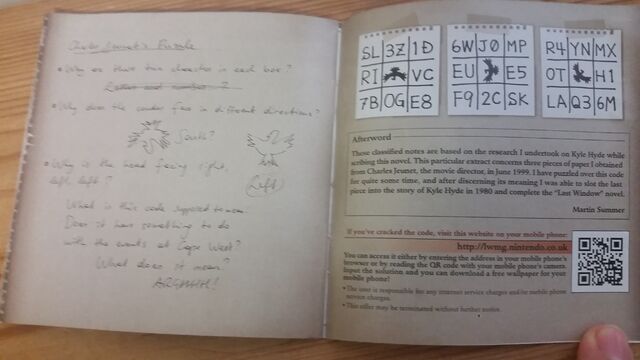 Charles Jeunet's Puzzle
• Why are there two characters in each box?
Letter and number ?
• Why does the condor face in different directions?
South?
(Left)
• Why is the head facing right,
left, left?
What is this code supposed to mean.
Does it have something to do
with the events at Cape West?
What does it mean?
SL 3Z 1D
RI VC
7B OG E8
6W J0 MP
EU E5
F9 2C SK
R4 YN MX
OT H1
LA Q3 6M
Afterword
These classified notes are based on the research I undertook on Kyle Hyde while
scribing this novel. This particular extract concerns three pieces of paper I obtained
from Charles Jeunet, the movie director, in June 1999. I have puzzled over this code
for quite some time, and after discerning its meaning I was able to slot the last
piece into the story of Kyle Hyde in 1980 and complete the "Last Window" novel.
Martin Summer
If you've cracked the code, visit this website on your mobile phone:
http://lwmg.nintendo.co.uk
You can access it either by entering the address in your mobile phone's
browser or by reading the QR code with your mobile phone's camera.
Input the solution and you can download a free wallpaper for your
mobile phone!
• The user is responsible for any internet service charges and/or mobile phone
service charges.
• This offer may be terminated without further notice.